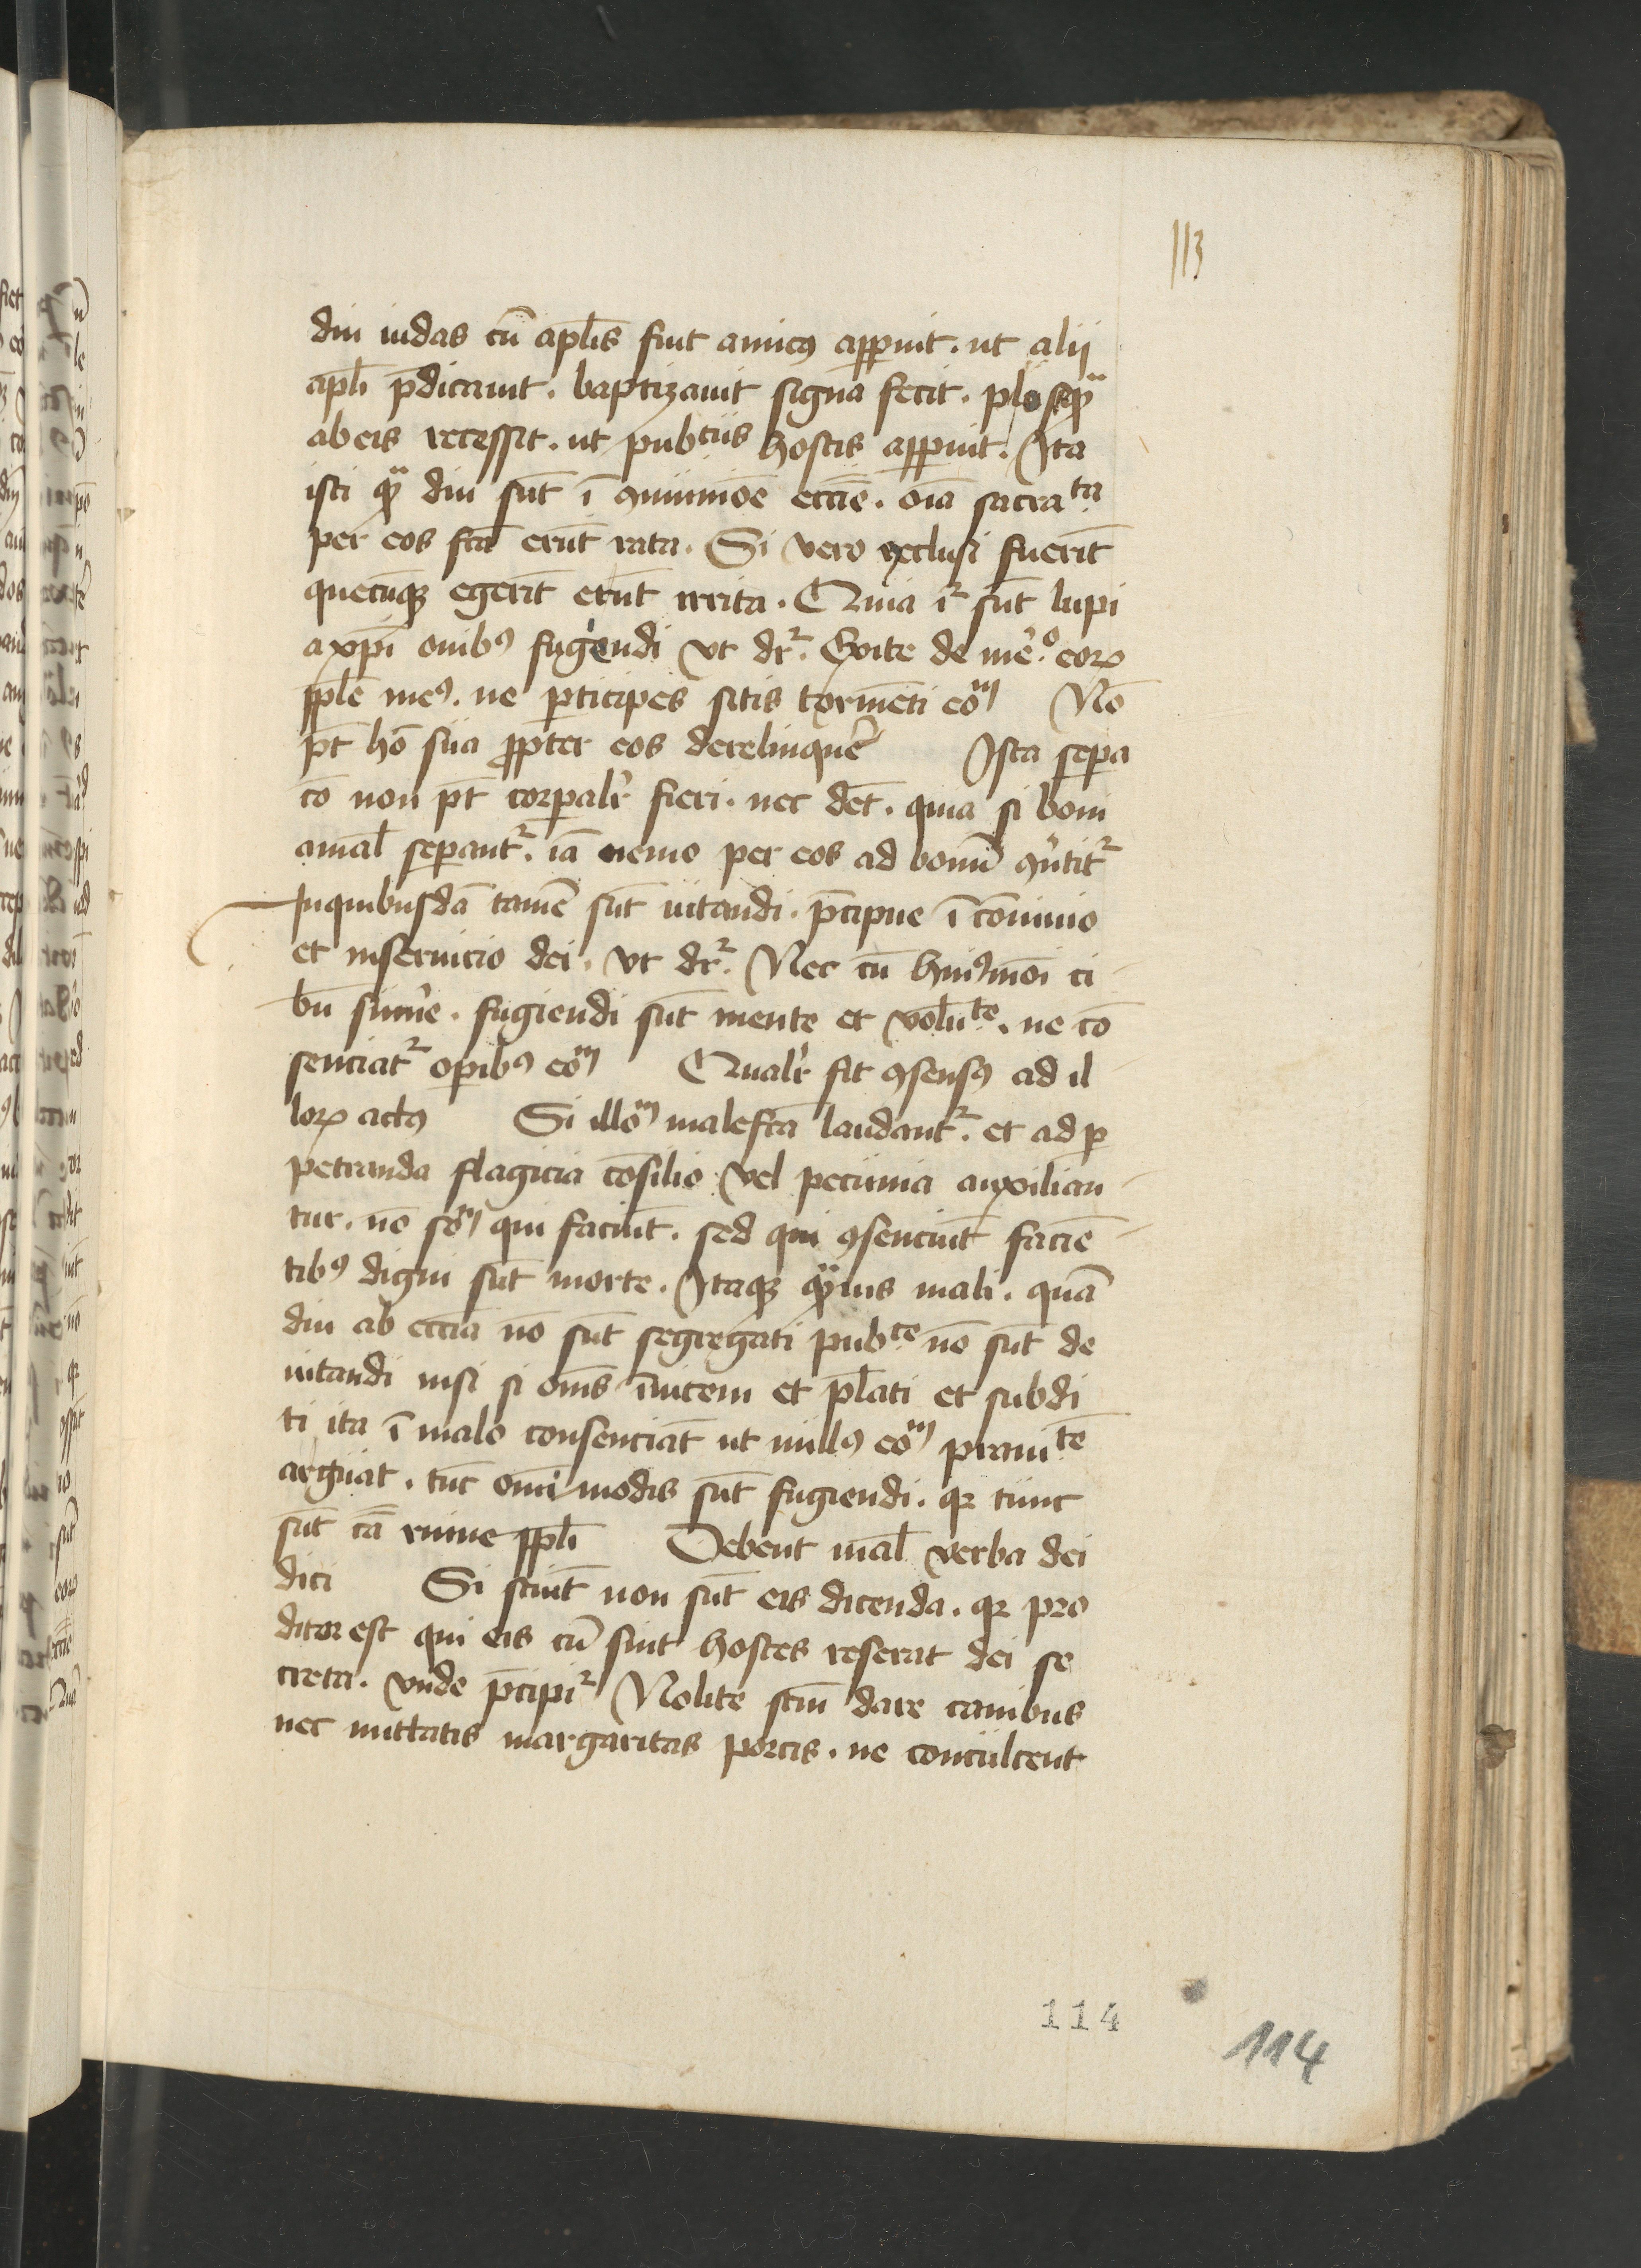 113
diu iudas cū apl̄is fuit amicꝰ apparuit . ut alii
apl̄i p̄dicauit . baptizauit signa fecit .
ab eis recessit . ut pubᶜᵘˢ hostis apparuit . Ita
isti qᵃ diu sūt ī ꝯmunione eccīe . oīa sacraᵗᵃ
per eos fcā erūt rata . Si vero reclusi fuerīt
quecūqꝫ egerīt erūt irrita . Quia iʳ sūt lupi
a xp̄i ouibꝰ fugiendi vt drʳ . Exite de meº eoꝝ
pple meꝰ . ne ꝑticipes sitis tormēti eoᵐ Nō
pt̄ hō sua ꝓpter eos derelinquēˀ Ista sepa
cō non pt̄ corporalr̄ fieri . nec det̄ . quia si boni
a mal̄ separantʳ . iā nemo per eos ad bonū ꝯūtitʳ
In quibusdā tamē sūt uitandi . p̄cipue ī conuiuio
et in seruicio dei . vt drʳ . Nec cū huiꝰmōi ci
bū sumˀe . fugiendi sūt mente et volūᵗᵉ . ne cō
senciatʳ opibꝰ eoᵐ Qualr̄ fit ꝯsensꝰ ad il
loꝝ actꝰ Si illoᵐ malefcā laudantʳ . et ad ꝑ
petranda flagicia cōsilio vel pecunia auxilian
tur . nō soᵐ qui faciūt . sed qui ꝯsenciūt faciē
tibꝰ digni sūt morte . Itaqꝫ qᵃuis mali . quā
diu ab eccīa nō sūt segregati pubᶜᵉ nō sūt de
uitandi nisi si om̄s īuicem et p̄lati et subdi
ti ita ī malo consenciāt ut nullꝰ eoᵐ prauiᵗᵉ
arguat . tūc omī modis sūt fugiendi . qꝛ tunc
sūt cā ruine ppl̄i Debent mal̄ verba dei
dici Si sciūt non sūt eis dicenda . qꝛ pro
ditor est qui eis cū sint hostes reserat dei se
creta . vnde p̄cipiʳ Nolite scm̄ dare canibus
nec mittatis margaritas porcis . ne conculcent
114
114